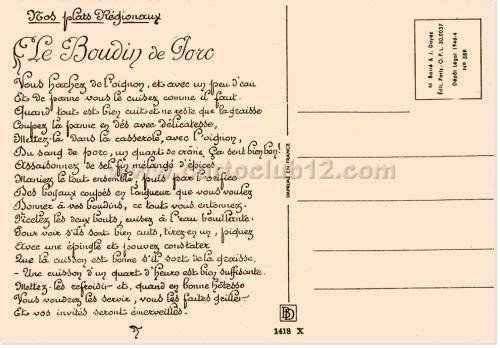 Nos plats Régionaux
Le Boudin de Porc
Vous hachez de l'oignon, et avec un peu d'eau
Et de panne vous le cuisez comme il faut.
Quand tout est bien cuit et ne reste que la graisse
Coupez la panne en dés avec délicatesse,
Mettez-la dans la casserole, avec l'oignon,
Du sang de porc, un quart de crème, ça sent bien bon!
Assaisonnez de sel fin mélangé d'épices
Maniez le tout ensemble, puis par l'orifice
Des boyaux coupés en longueur que vous voulez
Donner à vos boudins, ce tout vous entonnez.
Ficelez les deux bouts, cuisez à l'eau bouillante:
Pour voir s'ils sont bien cuits, tirez-en un, piquez
Avec une épingle et pouvez constater
Que la cuisson est bonne s'il sort de la graisse.
- Une cuisson d'un quart d'heure est bien suffisante.
Mettez-les refroidir et, quand en bonne hôtesse
Vous voudrez les servir, vous les faites griller
Et vos invités seront émerveillés.
www.cartoclub12.com
IMPRIMÉ EN FRANCE
BD
1418 X
M. Barré & J. Dayez
Édit. Paris - O.P.L. 30.0037
Dépôt Légal 1946-4
N° 589